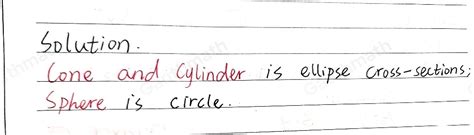 Solution.
Cone and Cylinder is ellipse cross-sections;
Sphere is circle.